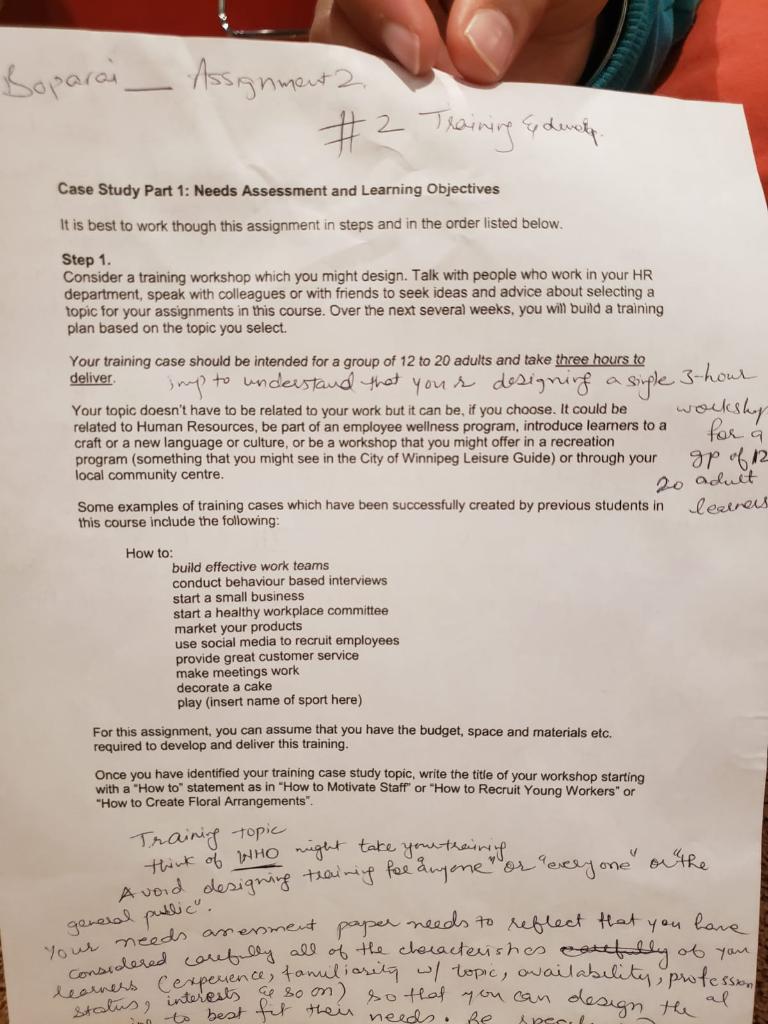 Boparai — Assignment 2
#2 Training & develop.
Case Study Part 1: Needs Assessment and Learning Objectives
It is best to work though this assignment in steps and in the order listed below.
Step 1.
Consider a training workshop which you might design. Talk with people who work in your HR
department, speak with colleagues or with friends to seek ideas and advice about selecting a
topic for your assignments in this course. Over the next several weeks, you will build a training
plan based on the topic you select.
Your training case should be intended for a group of 12 to 20 adults and take three hours to
deliver.
imp to understand that you r designing a single 3-hour
workshop
for a
gp of 12
20 adult
learners
Your topic doesn't have to be related to your work but it can be, if you choose. It could be
related to Human Resources, be part of an employee wellness program, introduce learners to a
craft or a new language or culture, or be a workshop that you might offer in a recreation
program (something that you might see in the City of Winnipeg Leisure Guide) or through your
local community centre.
Some examples of training cases which have been successfully created by previous students in
this course include the following:
How to:
build effective work teams
conduct behaviour based interviews
start a small business
start a healthy workplace committee
market your products
use social media to recruit employees
provide great customer service
make meetings work
decorate a cake
play (insert name of sport here)
For this assignment, you can assume that you have the budget, space and materials etc.
required to develop and deliver this training.
Once you have identified your training case study topic, write the title of your workshop starting
with a "How to" statement as in "How to Motivate Staff" or "How to Recruit Young Workers" or
"How to Create Floral Arrangements".
Training topic
think of WHO might take your training
Avoid designing training for "anyone" or "everyone" or "the
general public".
Your needs assessment paper needs to reflect that you have
considered carefully all of the characteristics carefully of your
learners (experience, familiarity w/ topic, availability, profession
al
status, interests & so on) so that you can design the
to best fit their needs. Be